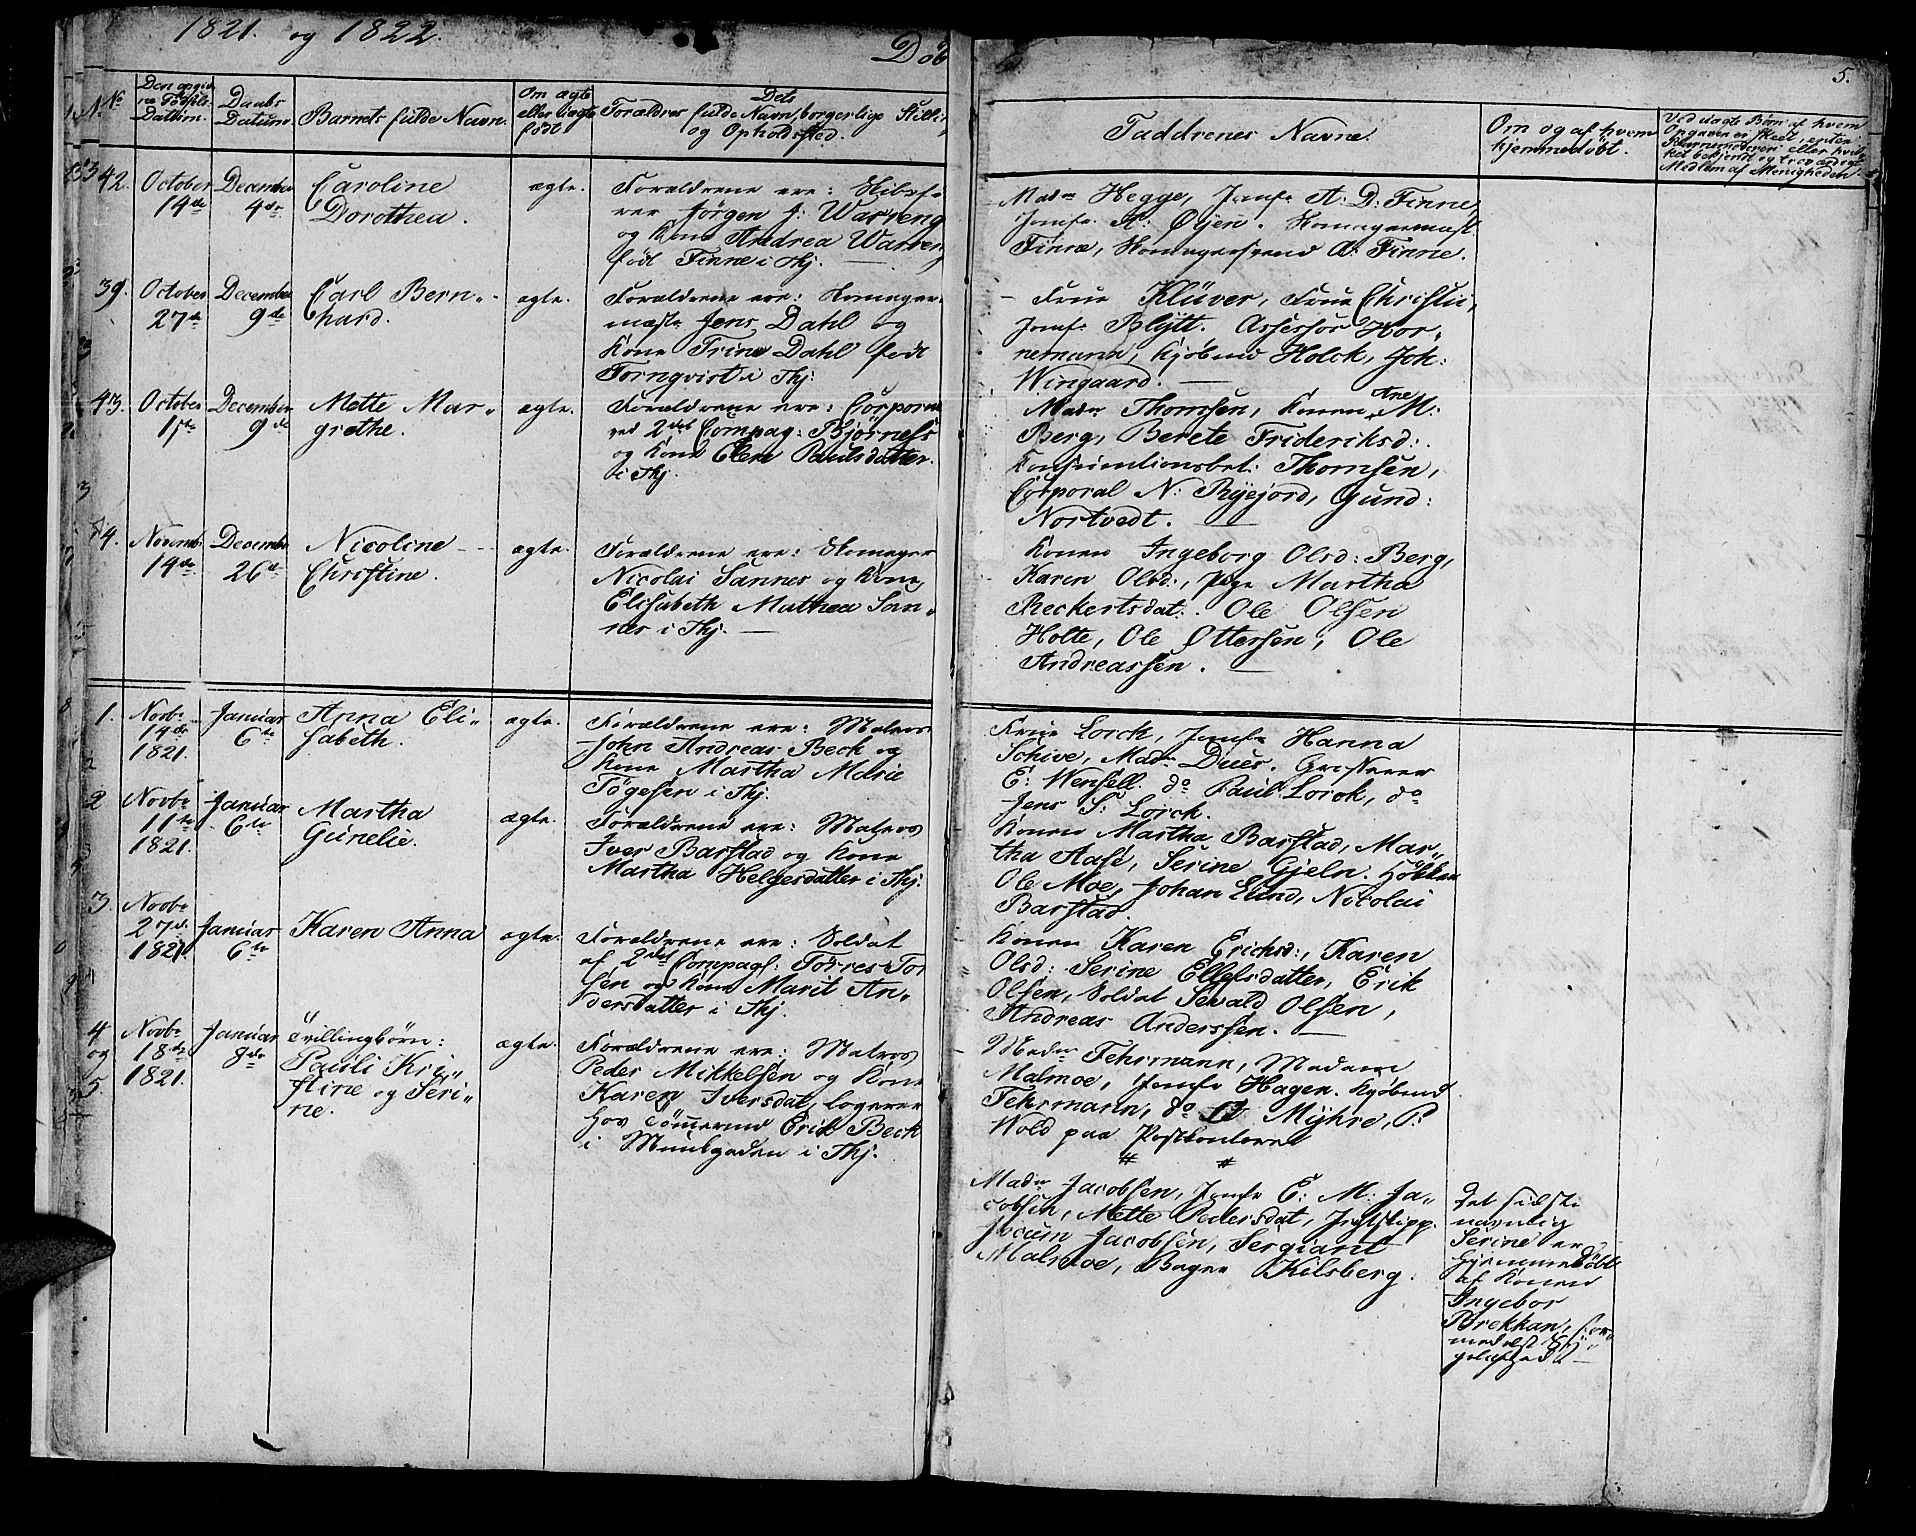 1821. og 1822.
Døb
5.
No
Den opgiv
ne Födsels
Dattum.
Daabs
Datum
Barnets fulde Navn.
Om ægte
eller uægte
født
Dets
Forældres fulde Navn, borgerlige Still:
og Opholdssted.
Faddrenes Navne.
Om og af hvem
hjemmedøbt.
Ved uægte Børn af hvem
Opgaven er skeet, enten
Barnemoderen eller hvil
ket bekjendt og troværdigt
Medlem af Menigheden.
42. October
14de
December
4de
Caroline
Dorothea.
ægte.
Forældrene ere: Skibsfø
rer Jørgen J: Warreng
og Kone Andrea Warreng
født Finne i Thj.
Madm Hegge, Jomfr A. D: Finne,
Jomfr. A. Øyen. Skomagermest
Finne, Skomagersvend A: Finne.
39. October
27de
December
9de
Carl Bern-
hard.
ægte.
Forældrene ere: Skomager
mestr Jens Dahl og
Kone Trine Dahl født
Tornqvist i Thj:
Frue Klüver, Frue Christie,
Jomfr Blÿtt. Assessor Hor-
nemann, Kjøbmd Holck, Joh:
Wingaard.
43. October
1ste
December
9de
Mette Mar-
grethe.
ægte.
Forældrene ere: Corporal
ved 2det Compag: Bjørnels
og Kone Elen Paulsdatter.
i Thj.
Madm Thomsen, Konen Ane M:
Berg, Berete Frideriksd:
Konsumtionsbet: Thomsen,
Corporal N: Ryejord, Gund:
Nortvedt.
44. Novemb:
14de
Decembr
26de
Nicoline
Christine.
ægte.
Forældrene ere: Skomager
Nicolai Sannes og Kone,
Elisabeth Mathea San-
nes i Thj.
Konen Ingeborg Olsd: Berg,
Karen Olsd:, Pige Martha
Reckertsdat:. Ole Olsen
Holte, Ole Ottersen, Ole
Andreassen.
1. Novbr
14de
1821.
Januar
6te
Anna Eli-
sabeth.
ægte.
Forældrene ere: Matros
John Andreas Beck og
Kone Martha Marie
Tøgesen i Thj.
Frue Lorck, Jomfr Hanna
Schive, Madm Duer. Grosserer
E: Wensell. do Paul Lorck, do
Jens S: Lorck.
2 Novbr
11te
1821.
Januar
6te
Martha
Gunelie.
ægte.
Forældrene ere: Matros
Iver Barstad og Kone
Martha Helgesdatter i Thj.
Konen Martha Barstad, Mar-
tha Aase, Serine Gjeln. Høkker
Ole Moe, Johan Lund, Nicolai
Barstad.
3. Novbr
27de
1821
Januar
6te
Karen Anna
ægte.
Forældrene ere: Soldat
af 2det Compag: Tørres Tor
sen og Kone Marit An-
dersdatter i Thj.
Konen Karen Erichsd:, Karen
Olsd: Serine Ellefsdatter, Erik
Olsen, Soldat Sevald Olsen,
Andreas Anderssen.
4
og
5.
Novbr
18de
1821.
Januar
8de
Tvillingbörn:
Pauli Kri-
stine og Seri-
ne.
ægte.
Forældrene ere: Matros
Peder Mikkelsen og Kone
Karen Iversdat, logerer
hos Tömmermd Erik Beck
i Munkgaden i Thj.
Madm Fehrmann, Madam
Malmoe, Jomfr Hagen. Kjøbmd
Fehrmann, do Myhre, P:
Wold paa Postkontoret
# #
Madm Jacobsen, Jomfr E: M: Ja-
cobsen, Mette Pedersdat, Jagtskipp.
Jocum Jacobsen, Sergiant
Malmoe, Bager Kilsberg.
Det sidste
navnlig
Serine er
hjemmedøbt
af Konen
Ingebor
Brekkan, for-
medelst Sy-
gelighed.